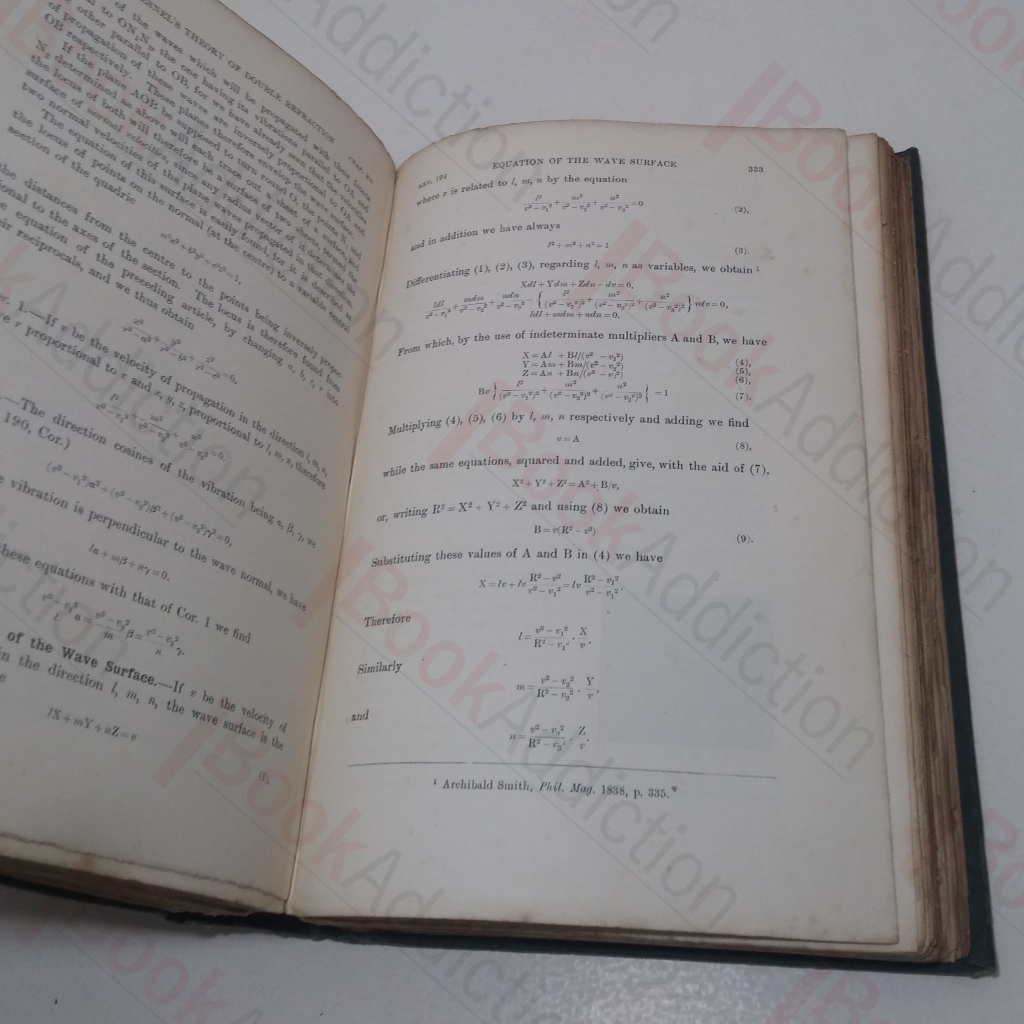 FRESNEL'S THEORY OF DOUBLE REFRACTION
of the waves which will be propagated with their fronts
to ON₁N₂, the one having its vibrations parallel to OA, and
other parallel to OB, for we have already proved that the velocities
of propagation of these waves are inversely proportional to OA and
OB respectively. These planes therefore envelop the wave surface, and
if the plane AOB be supposed to turn round O, the points N₁ and
N₂ determined as above will each trace out a surface, and
the locus of both will therefore be a surface of two sheets, termed the
surface of normal velocities, since any radius vector of it determines the
two normal velocities of the plane waves propagated in that direction.
The equation of this surface is easily found, for it is described as
the locus of points on the normal (at the centre) to a variable central
section of the quadric
a²x² + b²y² + c²z² = 1,
the distances from the centre to the points being inversely propor-
tional to the axes of the section. The locus is therefore found from
equation of the preceding article, by changing a, b, c, r into
their reciprocals, and we thus obtain
1.—If v be the velocity of propagation in the direction l, m, n,
r proportional to v, and x, y, z, proportional to l, m, n, therefore
l²/(v² − v₁²) + m²/(v² − v₂²) + n²/(v² − v₃²) = 0.
—The direction cosines of the vibration being α, β, γ, we
190, Cor.)
(v² − v₁²)α² + (v² − v₂²)β² + (v² − v₃²)γ² = 0,
vibration is perpendicular to the wave normal, we have
lα + mβ + nγ = 0.
these equations with that of Cor. 1 we find
(v² − v₁²)/l α = (v² − v₂²)/m β = (v² − v₃²)/n γ.
of the Wave Surface.—If v be the velocity of
in the direction l, m, n, the wave surface is the
lX + mY + nZ = v
(1),
ART. 194 EQUATION OF THE WAVE SURFACE 333
where v is related to l, m, n by the equation
l²/(v² − v₁²) + m²/(v² − v₂²) + n²/(v² − v₃²) = 0 (2),
and in addition we have always
l² + m² + n² = 1 (3).
Differentiating (1), (2), (3), regarding l, m, n as variables, we obtain ¹
Xdl + Ydm + Zdn − dv = 0,
ldl/(v² − v₁²) + mdm/(v² − v₂²) + ndn/(v² − v₃²) − {l²/(v² − v₁²)² + m²/(v² − v₂²)² + n²/(v² − v₃²)²} vdv = 0,
ldl + mdm + ndn = 0.
From which, by the use of indeterminate multipliers A and B, we have
X = Al + Bl/(v² − v₁²) (4),
Y = Am + Bm/(v² − v₂²) (5),
Z = An + Bn/(v² − v₃²) (6),
Bv {l²/(v² − v₁²)² + m²/(v² − v₂²)² + n²/(v² − v₃²)²} = 1 (7).
Multiplying (4), (5), (6) by l, m, n respectively and adding we find
v = A (8),
while the same equations, squared and added, give, with the aid of (7),
X² + Y² + Z² = A² + B/v,
or, writing R² = X² + Y² + Z² and using (8) we obtain
B = v(R² − v²) (9).
Substituting these values of A and B in (4) we have
X = lv + lv (R² − v²)/(v² − v₁²) = lv (R² − v₁²)/(v² − v₁²).
Therefore
l = (v² − v₁²)/(R² − v₁²) · X/v,
Similarly
m = (v² − v₂²)/(R² − v₂²) · Y/v,
and
n = (v² − v₃²)/(R² − v₃²) · Z/v.
¹ Archibald Smith, Phil. Mag. 1838, p. 335.
BookAddiction